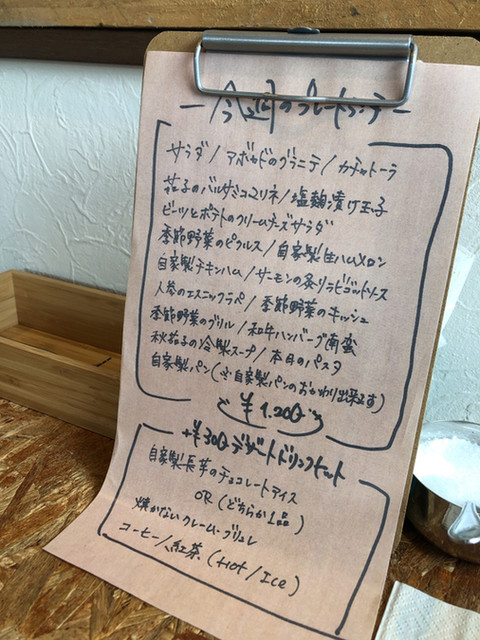 今週のプレートランチ
サラダ / アボカドのグラニテ / カチャトーラ
茄子のバルサミコマリネ / 塩麹漬け玉子
ビーツとポテトのクリームチーズサラダ
季節野菜のピクルス / 自家製生ハムメロン
自家製チキンハム / サーモンの炙りラビゴットソース
人参のエスニックラペ / 季節野菜のキッシュ
季節野菜のグリル / 和牛ハンバーグ南蛮
秋茄子の冷製スープ / 本日のパスタ
自家製パン (※自家製パンのおかわり出来ます)
¥1.200
+¥300 デザートドリンクセット
自家製長芋のチョコレートアイス
OR (どちらか1品)
焼かないクレーム・ブリュレ
コーヒー / 紅茶 (Hot / Ice)